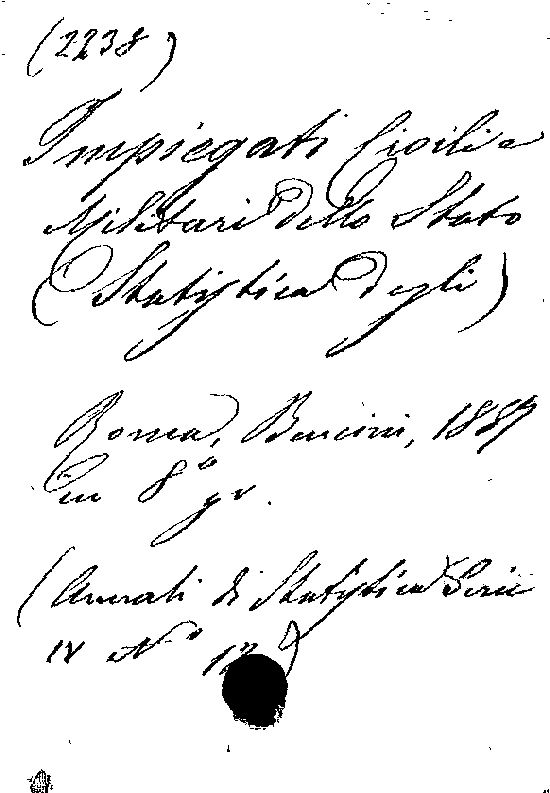 (2238)
Impiegati Civili e
Militari dello Stato
(Statistica degli)
Roma, Bencini, 1887
in 8° gr.
(Annali di Statistica Serie
IV N°